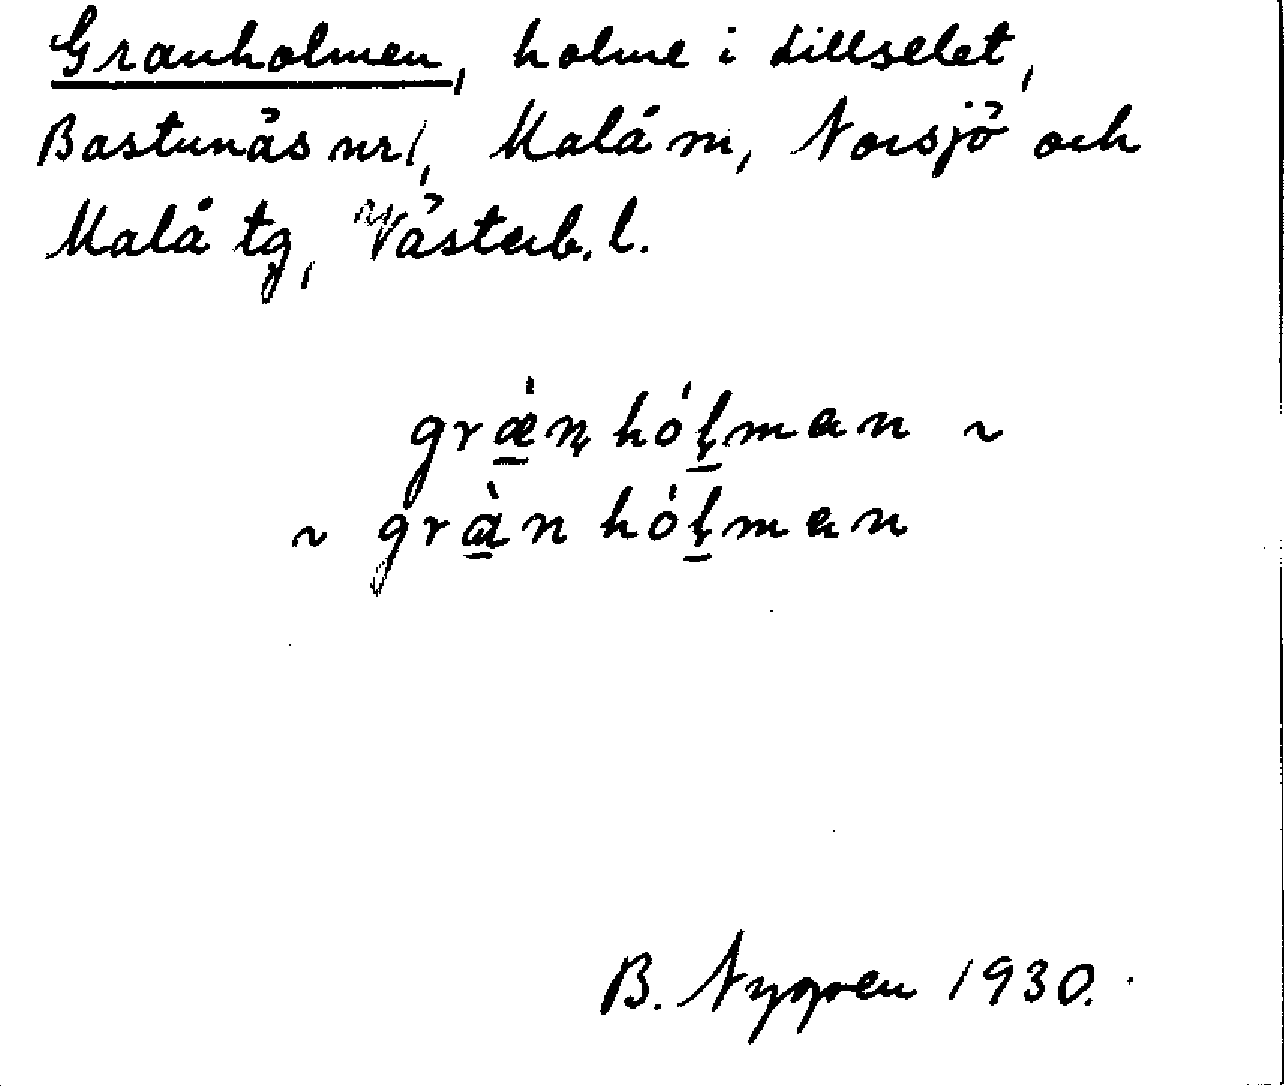 Granholmen, holme i Lillselet,
Bastunäs nr 1, Malå m, Norsjö och
Malå tg, Västerb. l.
græ̀n hóɭman ~
~ gràn hóɭman
B. Nygren 1930.